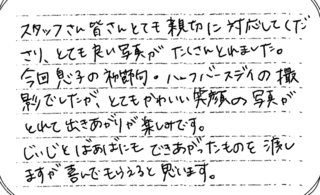 スタッフさん皆さんとても親切に対応してくだ
さり、とても良い写真がたくさんとれました。
今回息子の初節句・ハーフバースデイの撮
影でしたが、とてもかわいい笑顔の写真が
とれて出きあがりが楽しみです。
じぃじとばぁばにもできあがったものを渡し
ますが喜んでもらえると思います。